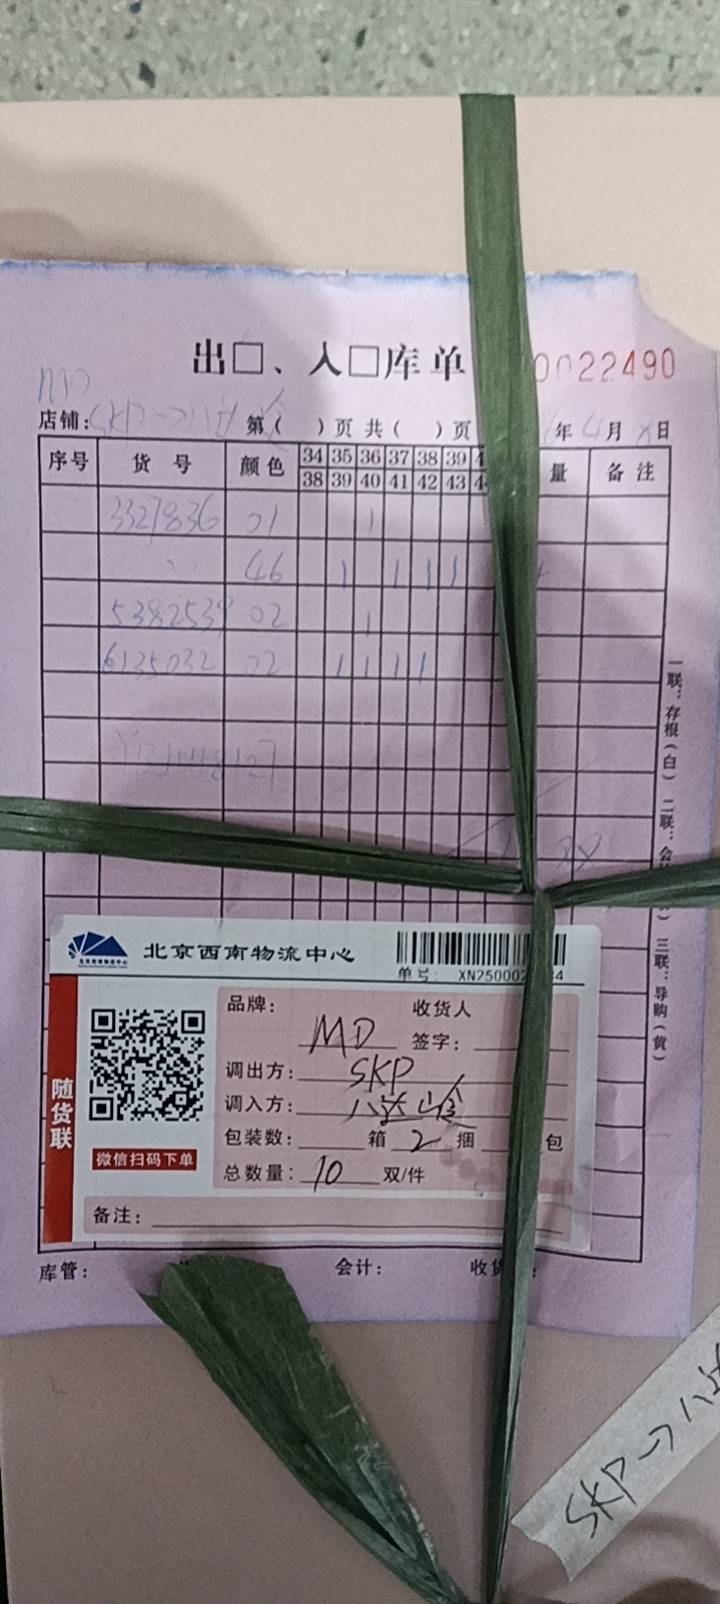 出□、入□库单 0022490
MD
店铺: SKP→八达岭 第( )页 共( )页 年 4月 日
序号 货号 颜色 34 35 36 37 38 39 量 备注
38 39 40 41 42 43
3327836 01 1
〃 46 1 1 1 1
5382539 02 1
6135032 02 1 1 1 1
一联:存根(白) 二联: 三联:导购(黄)
北京西南物流中心
单号: XN25000
随货联
微信扫码下单
品牌: MD 收货人
签字:
调出方: SKP
调入方: 八达岭
包装数: 箱 2 捆 包
总数量: 10 双/件
备注:
库管: 会计: 收货
SKP→八达